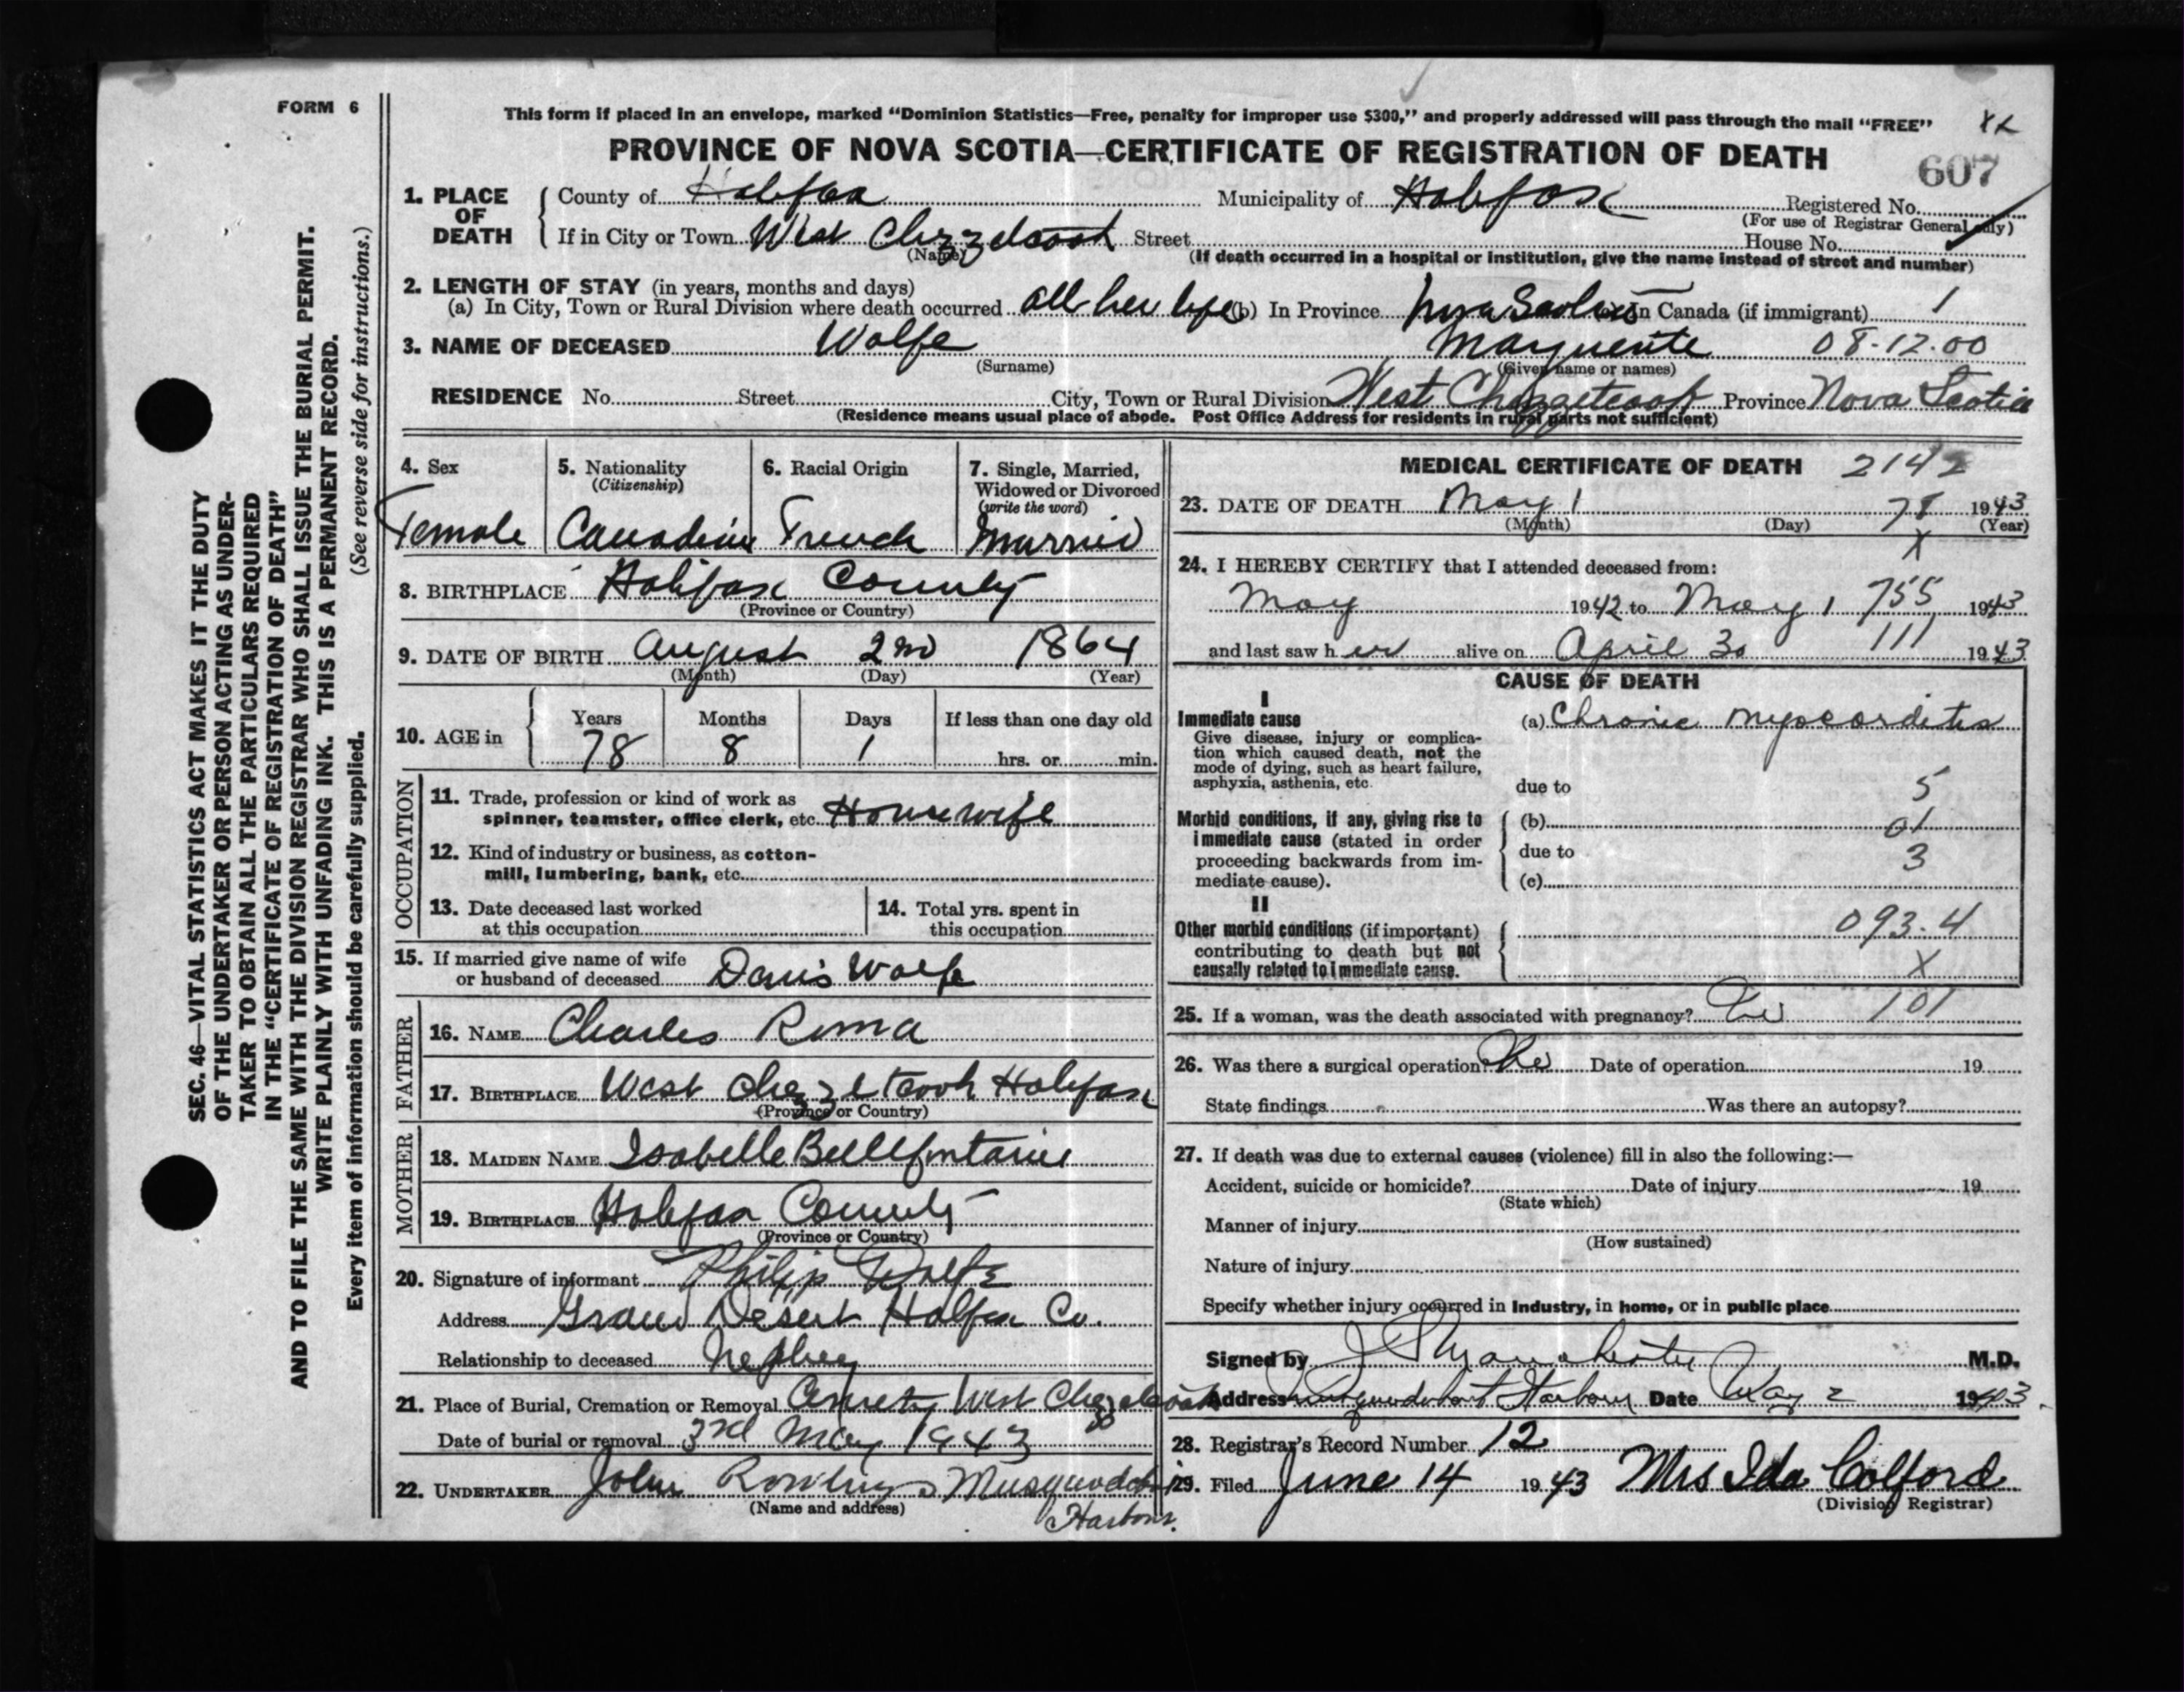 FORM 6
This form if placed in an envelope, marked "Dominion Statistics—Free, penalty for improper use $300," and properly addressed will pass through the mail "FREE"
PROVINCE OF NOVA SCOTIA—CERTIFICATE OF REGISTRATION OF DEATH
607
1. PLACE OF DEATH
County of Halifax Municipality of Halifax Registered No.
(For use of Registrar General only)
If in City or Town West Chezzetcook Street House No.
(Name) (If death occurred in a hospital or institution, give the name instead of street and number)
2. LENGTH OF STAY (in years, months and days)
(a) In City, Town or Rural Division where death occurred all her life (b) In Province Nova Scotia In Canada (if immigrant) 1
3. NAME OF DECEASED Wolfe Marguerite 08-12.00
(Surname) (Given name or names)
RESIDENCE No. Street City, Town or Rural Division West Chezzetcook Province Nova Scotia
(Residence means usual place of abode. Post Office Address for residents in rural parts not sufficient)
SEC. 46—VITAL STATISTICS ACT MAKES IT THE DUTY
OF THE UNDERTAKER OR PERSON ACTING AS UNDER-
TAKER TO OBTAIN ALL THE PARTICULARS REQUIRED
IN THE "CERTIFICATE OF REGISTRATION OF DEATH"
AND TO FILE THE SAME WITH THE DIVISION REGISTRAR WHO SHALL ISSUE THE BURIAL PERMIT.
WRITE PLAINLY WITH UNFADING INK. THIS IS A PERMANENT RECORD.
Every item of information should be carefully supplied. (See reverse side for instructions.)
4. Sex
Female
5. Nationality
(Citizenship)
Canadian
6. Racial Origin
French
7. Single, Married,
Widowed or Divorced
(write the word)
Married
8. BIRTHPLACE Halifax County
(Province or Country)
9. DATE OF BIRTH August 2nd 1864
(Month) (Day) (Year)
10. AGE in
Years Months Days If less than one day old
78 8 1 hrs. or min.
OCCUPATION
11. Trade, profession or kind of work as
spinner, teamster, office clerk, etc. Housewife
12. Kind of industry or business, as cotton-
mill, lumbering, bank, etc.
13. Date deceased last worked
at this occupation
14. Total yrs. spent in
this occupation
15. If married give name of wife
or husband of deceased Denis Wolfe
FATHER
16. NAME Charles Roma
17. BIRTHPLACE West Chezzetcook Halifax
(Province or Country)
MOTHER
18. MAIDEN NAME Isabelle Bellefontaine
19. BIRTHPLACE Halifax County
(Province or Country)
20. Signature of informant Philip Wolfe
Address Grand Desert Halifax Co.
Relationship to deceased Nephew
21. Place of Burial, Cremation or Removal West Chezzetcook
Date of burial or removal 3rd May 1943
22. UNDERTAKER John Rowlings Musquodoboit
(Name and address)
Harbour
MEDICAL CERTIFICATE OF DEATH 2142
23. DATE OF DEATH May 1 1943
(Month) (Day) (Year)
X
24. I HEREBY CERTIFY that I attended deceased from:
May 1942 to May 1 755 1943
and last saw her alive on April 30 111 1943
CAUSE OF DEATH
I
Immediate cause
Give disease, injury or complica-
tion which caused death, not the
mode of dying, such as heart failure,
asphyxia, asthenia, etc.
(a) Chronic Myocarditis
due to 5
Morbid conditions, if any, giving rise to
immediate cause (stated in order
proceeding backwards from im-
mediate cause).
(b) 01
due to 3
(c)
II
Other morbid conditions (if important)
contributing to death but not
causally related to immediate cause.
093.4
X
25. If a woman, was the death associated with pregnancy? No 101
26. Was there a surgical operation? No Date of operation 19
State findings Was there an autopsy?
27. If death was due to external causes (violence) fill in also the following:—
Accident, suicide or homicide? Date of injury 19
(State which)
Manner of injury
(How sustained)
Nature of injury
Specify whether injury occurred in Industry, in home, or in public place
Signed by M.D.
Address Musquodoboit Harbour Date May 2 1943
28. Registrar's Record Number 12
29. Filed June 14 1943 Mrs Ida Colford
(Division Registrar)